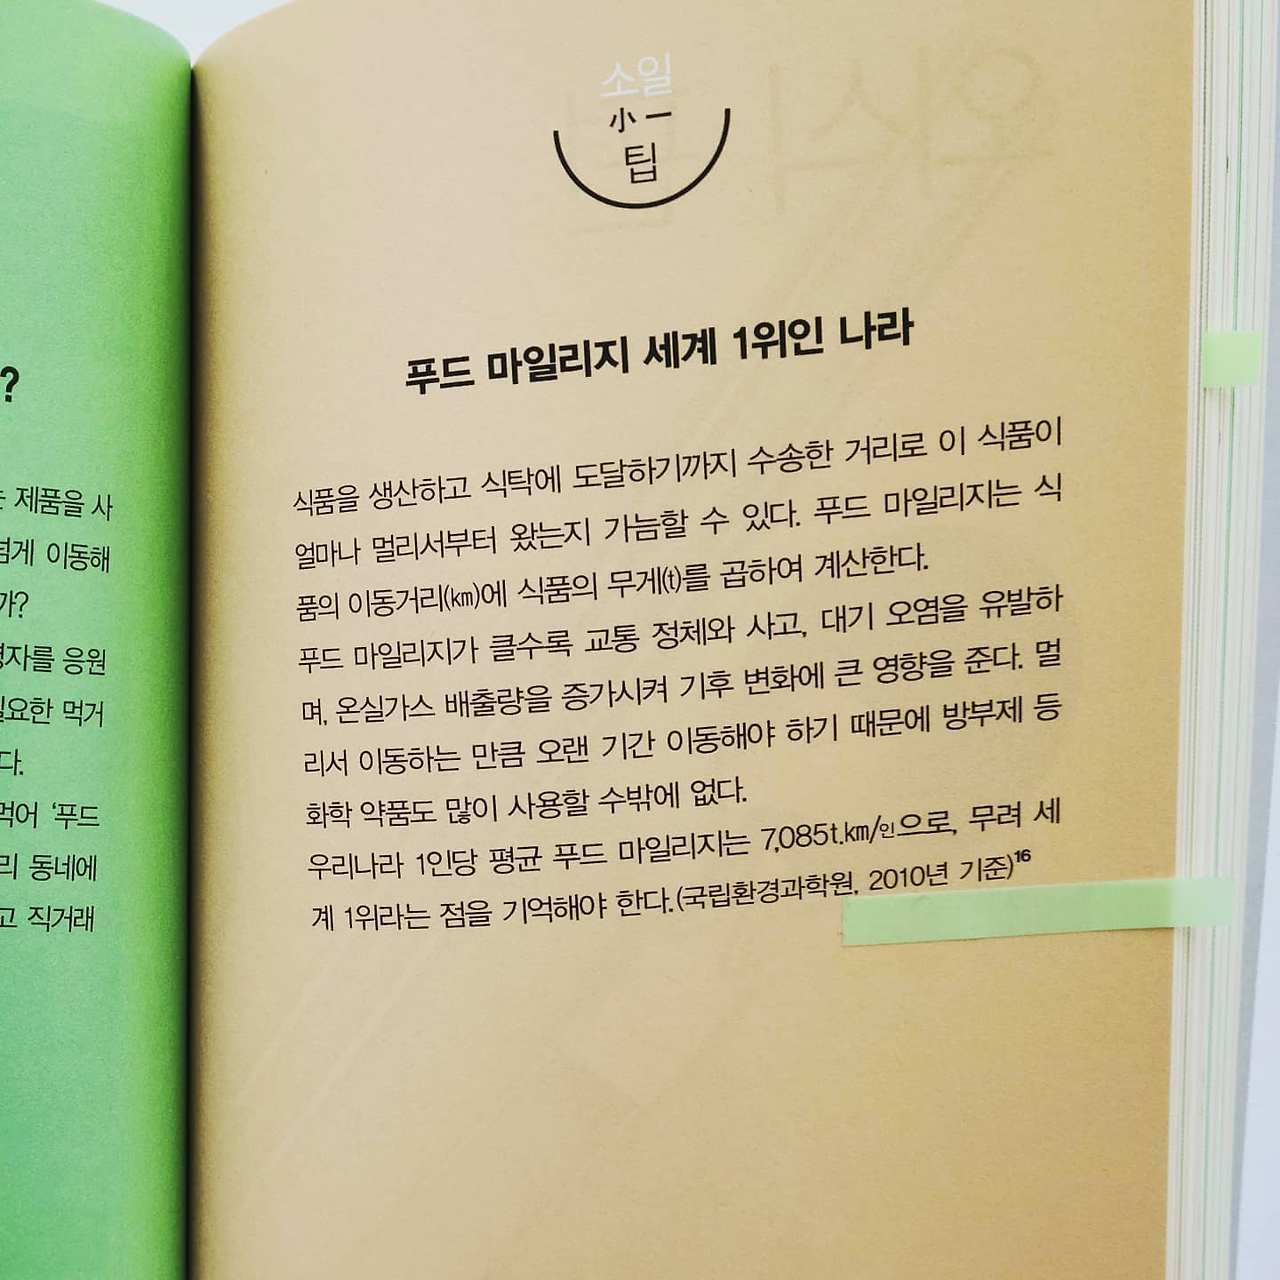 ?
제품을 사
넘게 이동해
가?
영자를 응원
필요한 먹거
다.
먹어 '푸드
리 동네에
고 직거래
소일
小一
팁
푸드 마일리지 세계 1위인 나라
식품을 생산하고 식탁에 도달하기까지 수송한 거리로 이 식품이
얼마나 멀리서부터 왔는지 가늠할 수 있다. 푸드 마일리지는 식
품의 이동거리(㎞)에 식품의 무게(t)를 곱하여 계산한다.
푸드 마일리지가 클수록 교통 정체와 사고, 대기 오염을 유발하
며, 온실가스 배출량을 증가시켜 기후 변화에 큰 영향을 준다. 멀
리서 이동하는 만큼 오랜 기간 이동해야 하기 때문에 방부제 등
화학 약품도 많이 사용할 수밖에 없다.
우리나라 1인당 평균 푸드 마일리지는 7,085t.㎞/인으로, 무려 세
계 1위라는 점을 기억해야 한다.(국립환경과학원, 2010년 기준)16